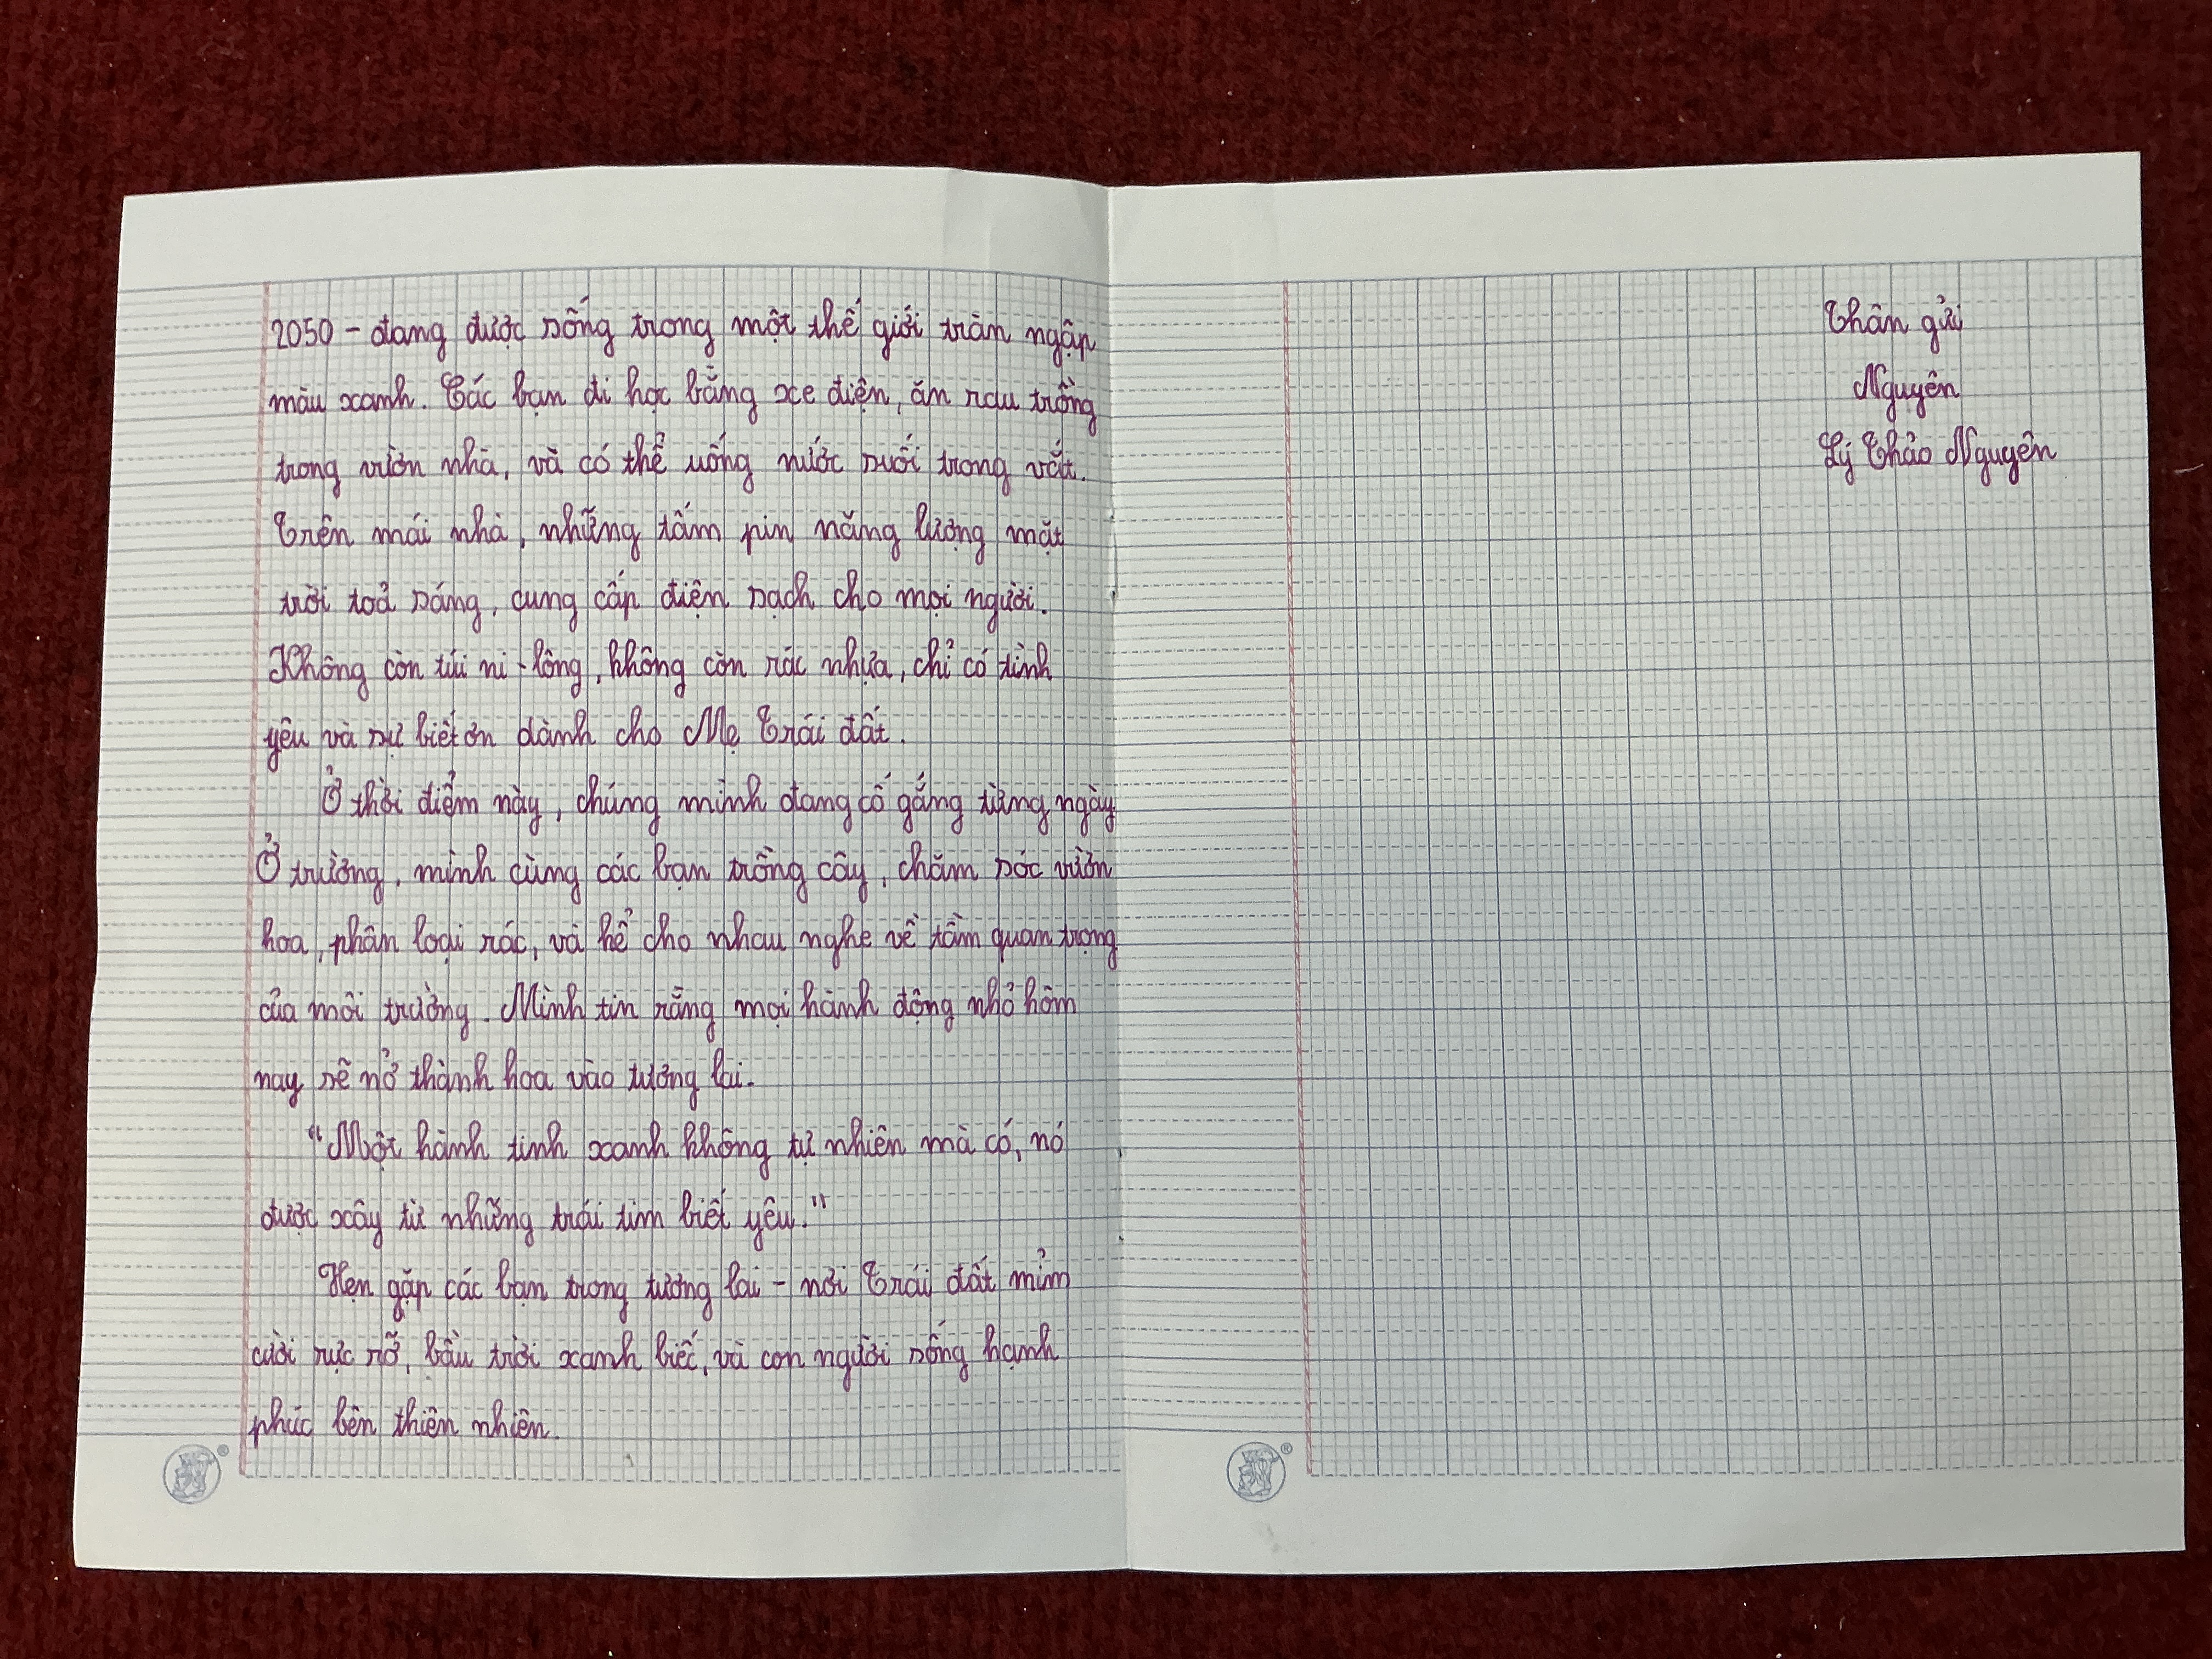 2050 - đang được sống trong một thế giới tràn ngập
màu xanh. Các bạn đi học bằng xe điện, ăn rau trồng
trong vườn nhà, và có thể uống nước suối trong vắt.
Trên mái nhà, những tấm pin năng lượng mặt
trời toả sáng, cung cấp điện sạch cho mọi người.
Không còn túi ni-lông, không còn rác nhựa, chỉ có tình
yêu và sự biết ơn dành cho Mẹ Trái đất.
Ở thời điểm này, chúng mình đang cố gắng từng ngày
Ở trường, mình cùng các bạn trồng cây, chăm sóc vườn
hoa, phân loại rác, và kể cho nhau nghe về tầm quan trọng
của môi trường. Mình tin rằng mọi hành động nhỏ hôm
nay sẽ nở thành hoa vào tương lai.
"Một hành tinh xanh không tự nhiên mà có, nó
được xây từ những trái tim biết yêu."
Hẹn gặp các bạn trong tương lai - nơi Trái đất mỉm
cười rực rỡ, bầu trời xanh biếc, và con người sống hạnh
phúc bên thiên nhiên.
Thân gửi
Nguyên
Lý Thảo Nguyên